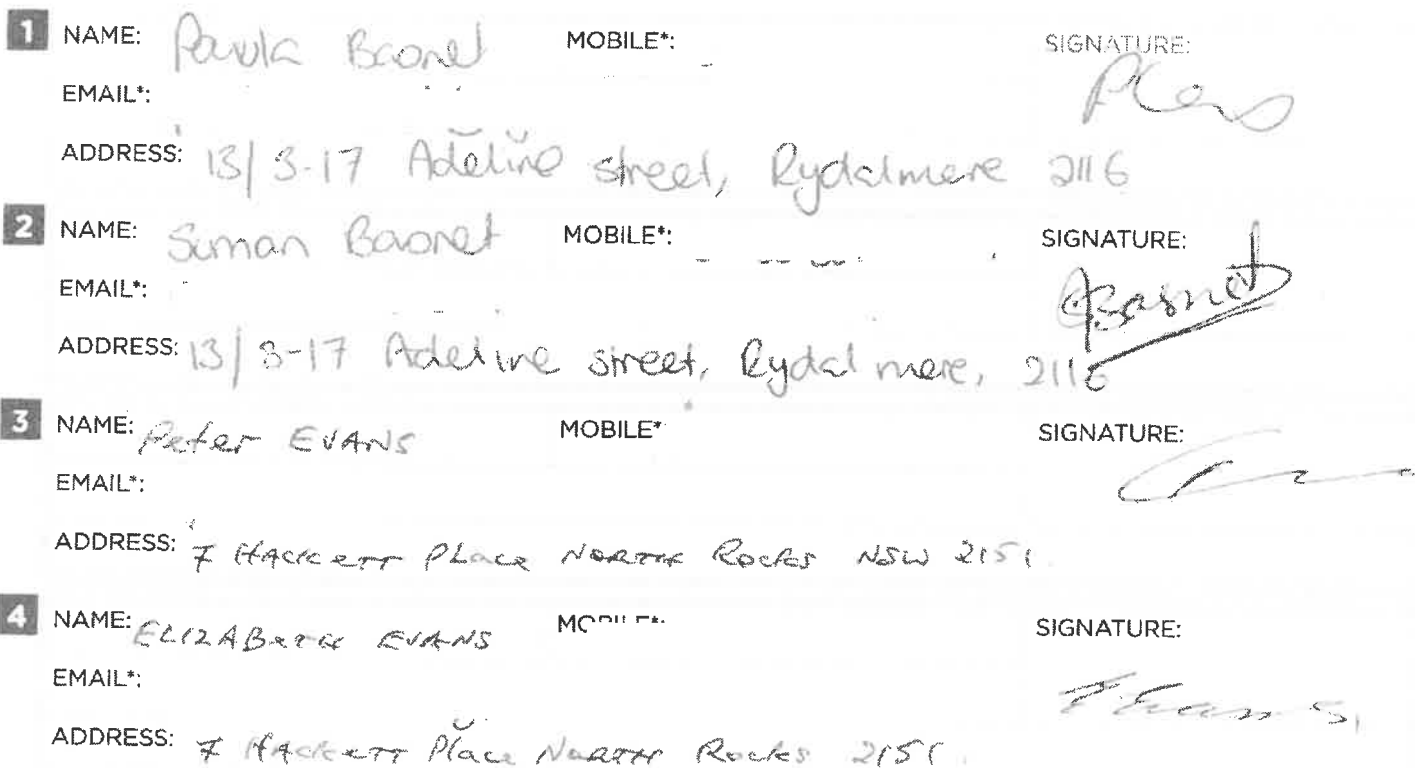 1 NAME: Parula Basnet MOBILE*: SIGNATURE:
EMAIL*:
ADDRESS: 13/3-17 Adeline street, Rydalmere 2116
2 NAME: Suman Basnet MOBILE*: SIGNATURE: Basnet
EMAIL*:
ADDRESS: 13/3-17 Adeline street, Rydalmere, 2116
3 NAME: Peter EVANS MOBILE* SIGNATURE:
EMAIL*:
ADDRESS: 7 HACKETT PLace NORTH Rocks NSW 2151
4 NAME: ELIZABETH EVANS SIGNATURE: Evans
EMAIL*:
ADDRESS: 7 HACKETT Place NORTH Rocks 2151